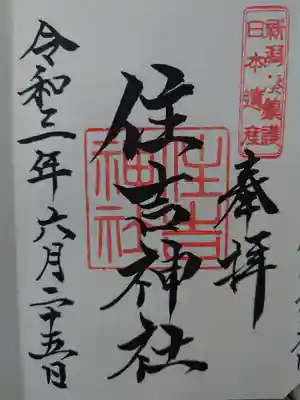 新潟
日本遺産
奉拝
住吉神社
住吉
神社
令和三年六月二十五日